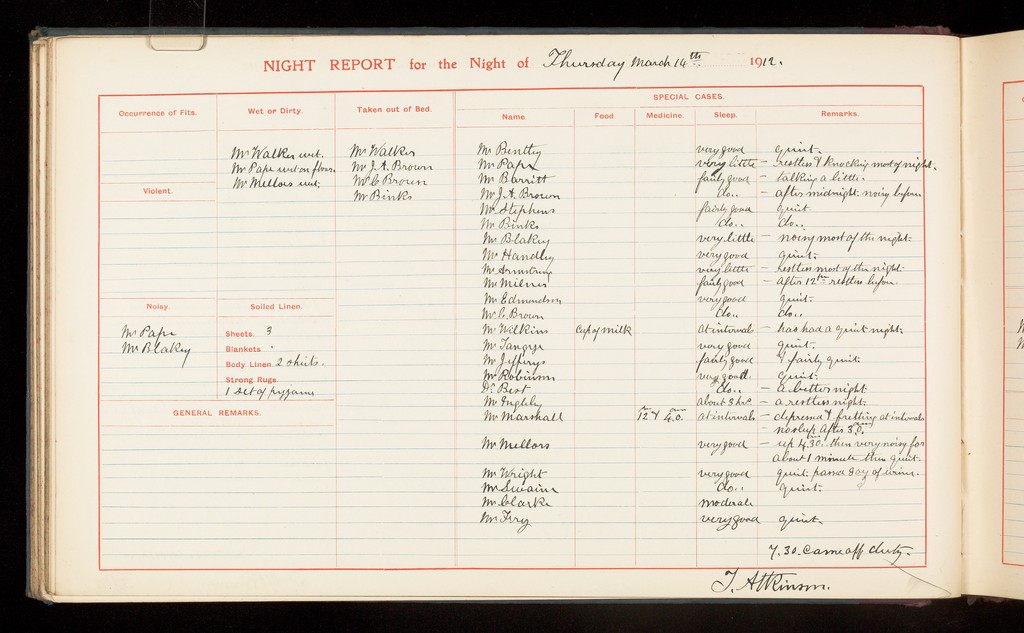 NIGHT REPORT for the Night of Thursday March 14th 1912.
SPECIAL CASES.
Occurrence of Fits. Wet or Dirty. Taken out of Bed. Name. Food. Medicine. Sleep. Remarks.
Mr Walker wet. Mr Walker Mr Bentley very good quiet.
Mr Pape wet on floor. Mr J. A. Brown Mr Pape very little – restless & knocking most of night.
Mr Mellors wet. Mr C Brown Mr Barritt fairly good – talking a little.
Violent. Mr Binks Mr J. A. Brown do.. – after midnight. noisy before
Mr Stephens fairly good quiet
Mr Binks do.. do..
Mr Blakey very little – noisy most of the night.
Mr Handley very good quiet.
Mr Armstrong very little – restless most of the night.
Mr Milner fairly good – after 12 restless before.
Mr Edmundson very good quiet.
Noisy. Soiled Linen. Mr C. Brown do.. do..
Mr Pape Sheets. 3 Mr Wilkins Cup of milk at intervals – has had a quiet night.
Mr Blakey Blankets Mr Tangye very good quiet.
Body Linen 2 shirts. Mr Jefferys fairly good & fairly quiet.
Strong Rugs. Mr Robinson very good. quiet.
1 set of pyjama Dr Best do.. – a better night.
Mr Inghby about 3 hrs. – a restless night.
GENERAL REMARKS. Mr Marshall 12 & 4.0. at intervals – depressed & fretting at intervals
– no sleep after 3.0.
Mr Mellors very good – up 4.30. then very noisy for
about 1 minute then quiet.
Mr Wright very good quiet. passed of urine.
Mr Swain do.. quiet.
Mr Clarke moderate
Mr Fry very good quiet.
7.30. Came off duty.
T. Atkinson.